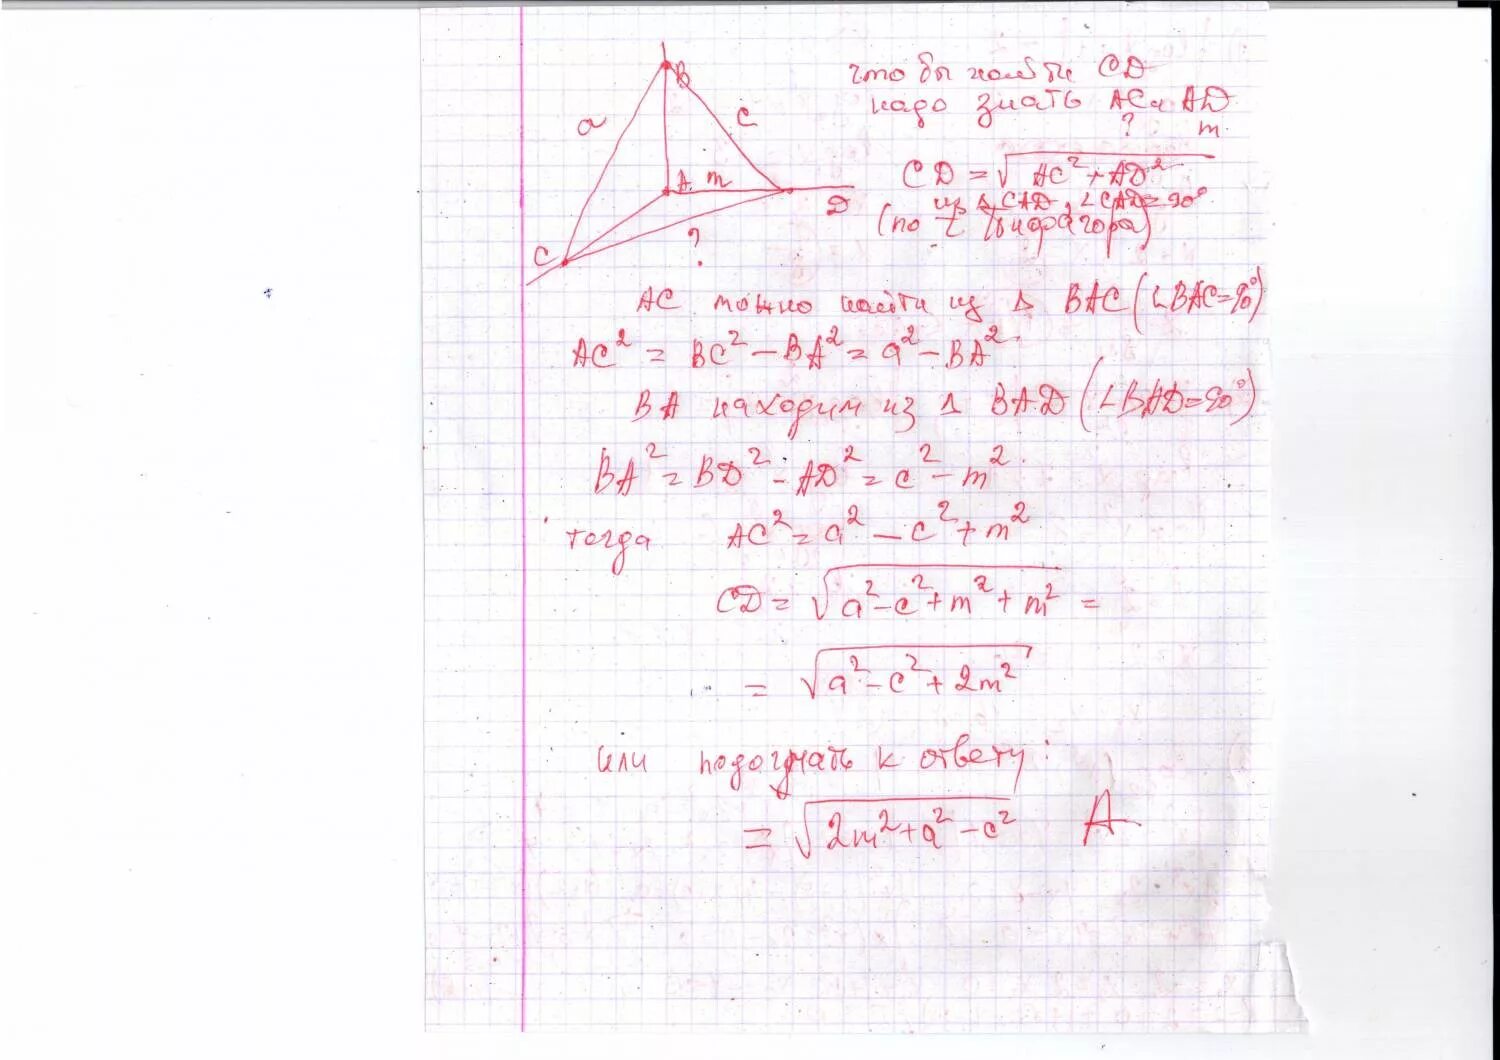 B
a
c
A m
D
C
?
что бы найти CD
надо знать AC и AD
? m
CD = √AC² + AD²
из Δ CAD, ∠CAD = 90°
(по т Пифагора)
AC можно найти из Δ BAC (∠BAC = 90°)
AC² = BC² - BA² = a² - BA²
BA находим из Δ BAD (∠BAD = 90°)
BA² = BD² - AD² = c² - m²
тогда AC² = a² - c² + m²
CD = √a² - c² + m² + m² =
= √a² - c² + 2m²
или подогнать к ответу:
= √2m² + a² - c² A